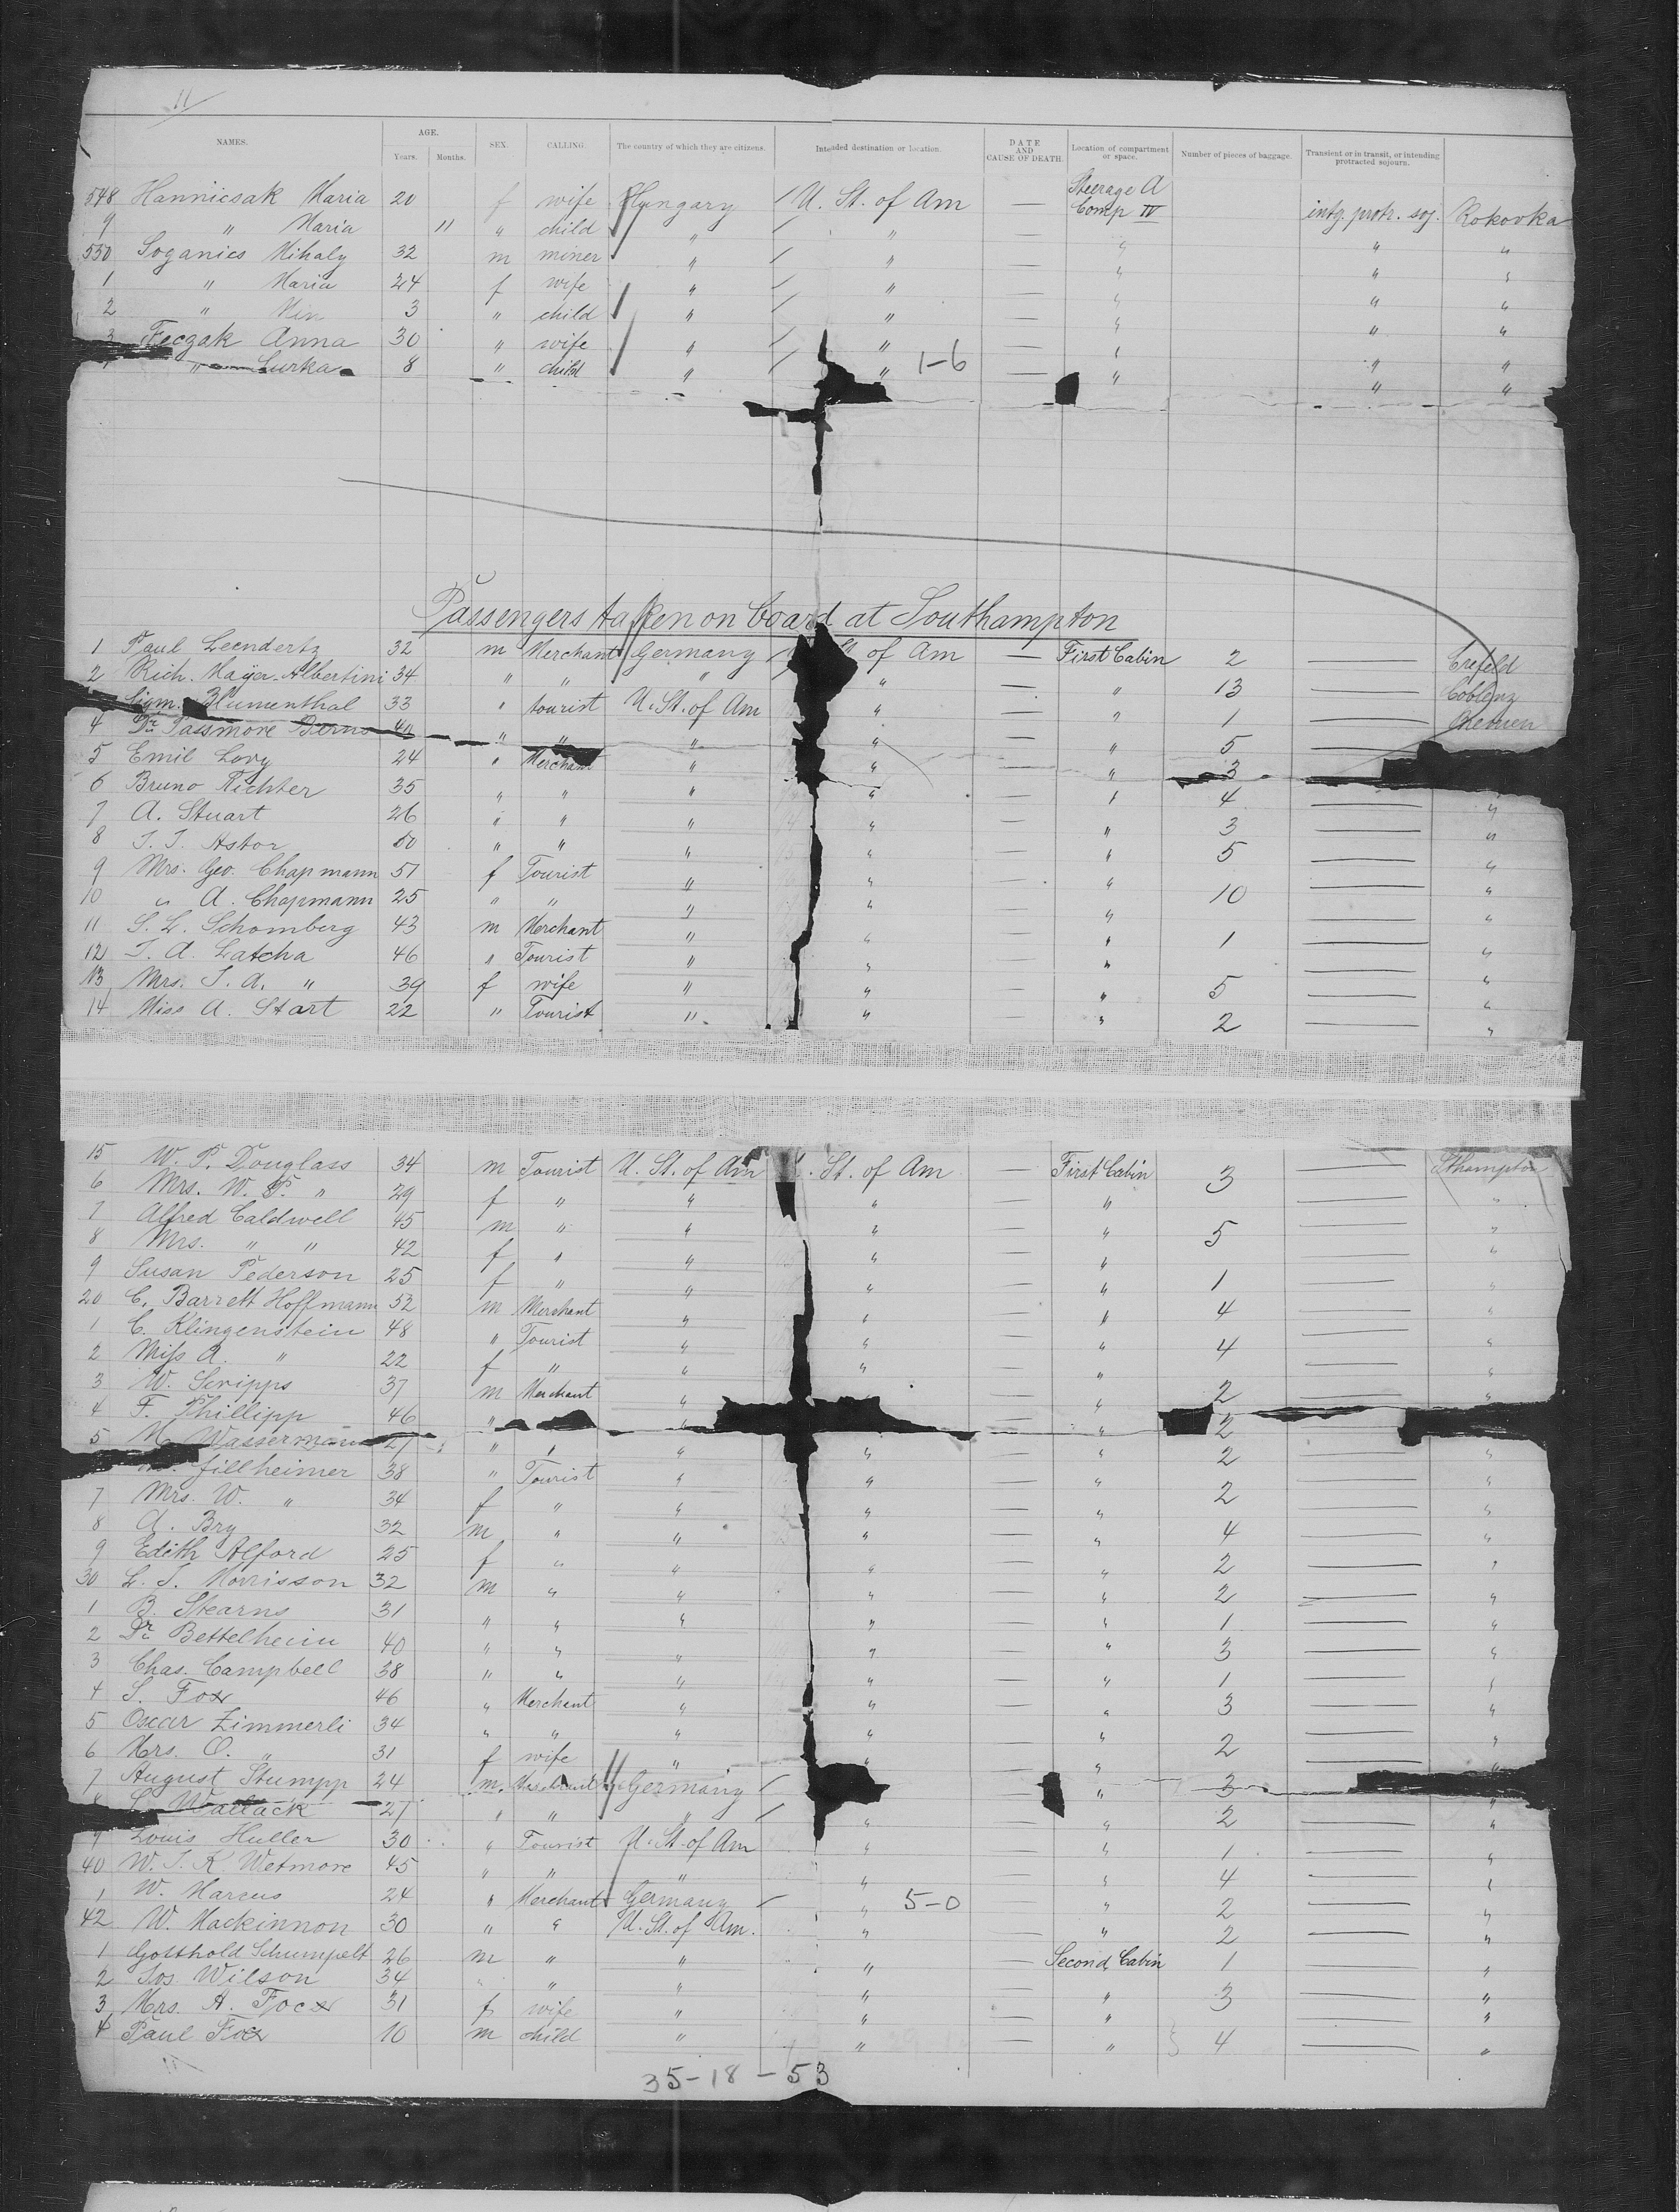 11
NAMES. AGE. Years. Months. SEX. CALLING. The country of which they are citizens. Intended destination or location. DATE AND CAUSE OF DEATH. Location of compartment or space. Number of pieces of baggage. Transient or in transit, or intending protracted sojourn.
548 Hannicsak Maria 20 f wife Hungary U. St. of Am — Steerage A Comp IV intg. protr. soj. Rokovka
9 " Maria 11 " child " " — " " "
550 Soganics Mihaly 32 m miner " " — " " "
1 " Maria 24 f wife " " — " " "
2 " 3 " child " " — " " "
3 Feczak Anna 30 " wife " " — " " "
" Surka 8 " child " " 1-6 — " " "
Passengers taken on board at Southampton
1 Paul Leendertz 32 m Merchant Germany St. of Am — First Cabin 2 — Crefeld
2 Rich. Mayer-Albertini 34 " " " " — " 13 — Coblenz
Sigm. Blumenthal 33 " tourist U. St. of Am " — " 1 — Bremen
4 Dr. Passmore Berns 40 " " " " — " 5 —
5 Emil Lovy 24 " Merchant " " — " 3 —
6 Bruno Richter 35 " " " " — " 4 — "
7 A. Stuart 26 " " " " — " 3 — "
8 J. J. Astor 50 " " " " — " 5 — "
9 Mrs. Geo. Chapmann 51 f Tourist " " — " 10 — "
10 " A. Chapmann 25 " " " " — " "
11 S. L. Schomberg 43 m Merchant " " — " 1 — "
12 J. A. Latcha 46 " Tourist " " — " — "
13 Mrs. J. A. " 39 f wife " " — " 5 — "
14 Miss A. Start 22 " Tourist " " — " 2 — "
15 W. P. Douglass 34 m Tourist U. St. of Am . St. of Am — First Cabin 3 — Sthampton
6 Mrs. W. P. " 29 f " " " — " — "
7 Alfred Caldwell 45 m " " " — " 5 — "
8 Mrs. " " 42 f " " " — " "
9 Susan Pederson 25 f " " " — " 1 — "
20 C. Barrett Hoffmann 52 m Merchant " " — " 4 — "
1 C. Klingenstein 48 " Tourist " " — " 4 — "
2 Miss A. " 22 f " " " — " — "
3 W. Scripps 37 m Merchant " — " 2 — "
4 F. Phillipp 46 " " — " 2 —
5 M. Wasserman 27 " " " " — " 2 — "
Jillheimer 38 " Tourist " " — " 2 — "
7 Mrs. W. " 34 f " " " — " — "
8 A. Bry 32 m " " " — " 4 — "
9 Edith Alford 25 f " " " — " 2 — "
30 L. J. Morrisson 32 m " " " — " 2 — "
1 B. Stearns 31 " " " " — " 1 — "
2 Dr. Bettelheim 40 " " " " — " 3 — "
3 Chas. Campbell 38 " " " " — " 1 — "
4 S. Fox 46 " Merchant " " — " 3 — "
5 Oscar Zimmerli 34 " " " " — " 2 — "
6 Mrs. O. " 31 f wife " " — " — "
7 August Stumpp 24 m. Merchant Germany — " 3 — "
8 S. Wallack 27 " " " " — " 2 — "
9 Louis Huller 30 " Tourist U. St. of Am " — " 1 — "
40 W. J. K. Wetmore 45 " " " " — " 4 — "
1 W. Marcus 24 " Merchant Germany " 5-0 — " 2 — "
42 W. Mackinnon 30 " " U. St. of Am. " — " 2 — "
1 Gotthold Schumpelt 26 m " " " — Second Cabin 1 — "
2 Jos. Wilson 34 " " " " — " 3 — "
3 Mrs. A. Focx 31 f wife " " — " — "
4 Paul Fox 10 m child " " — " 4 — "
35-18-53